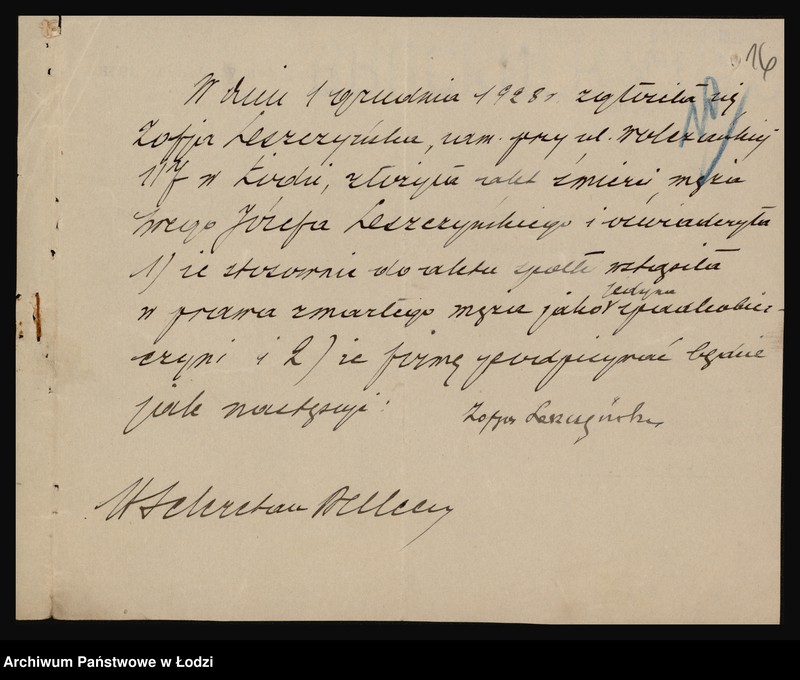 16
W dniu 1 grudnia 1928 r. zgłosiła się
Zofja Leszczyńska, zam. przy ul. Wólczańskiej
117 w Łodzi, złożyła akt śmierci męża
swego Józefa Leszczyńskiego i oświadczyła
1) że stosownie do aktu spółki wstąpiła
w prawa zmarłego męża jako jedyna spadkobier-
czyni i 2) że firmę podpisywać będzie
jak następuje:
Zofja Leszczyńska
Sekretarz
Archiwum Państwowe w Łodzi